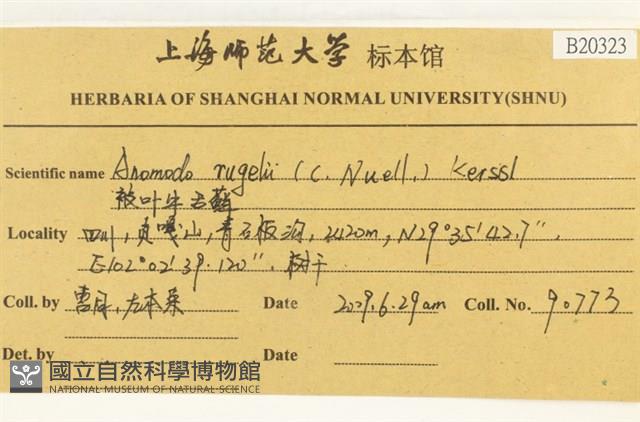 上海师范大学 标本馆
B20323
HERBARIA OF SHANGHAI NORMAL UNIVERSITY(SHNU)
Scientific name Anomodo rugelii (C. Nuell.) Kerssl
叶牛舌藓
Locality 四川, 贡嘎山, 青石板沟, 2420m, N29°35'42.7",
E102°02'39.120". 树干
Coll. by 曹同, 左本荣 Date 2009.6.29am Coll. No. 90773
Det. by Date
國立自然科學博物館
NATIONAL MUSEUM OF NATURAL SCIENCE